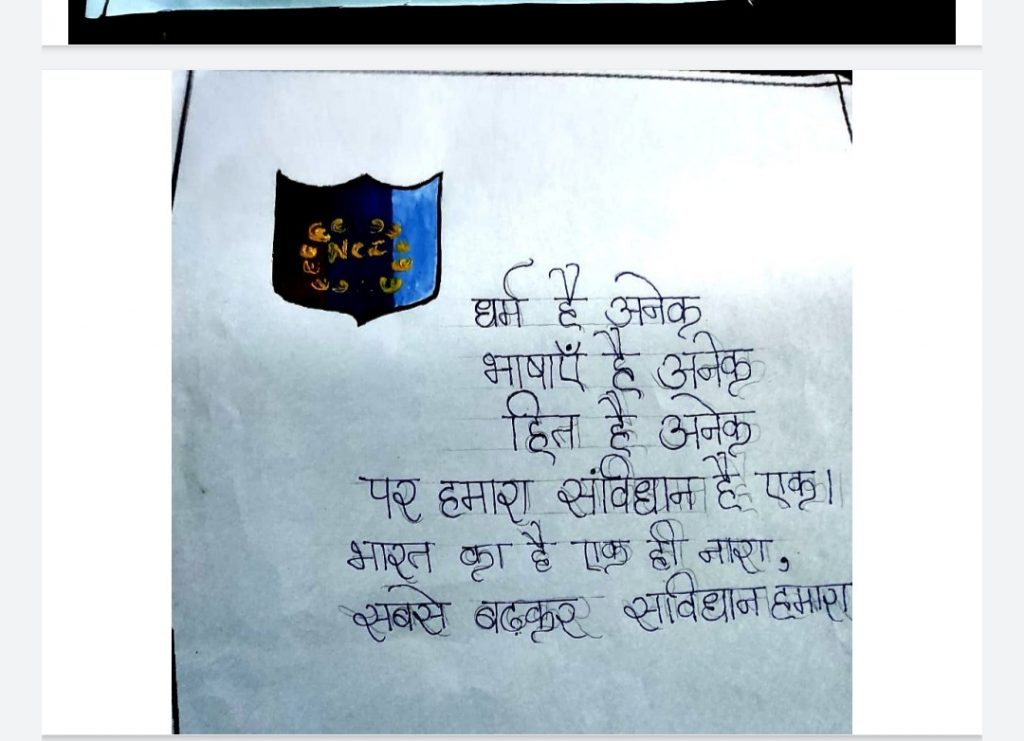 NCC
धर्म है अनेक
भाषाएँ है अनेक
हित है अनेक
पर हमारा संविधान है एक।
भारत का है एक ही नारा,
सबसे बढ़कर संविधान हमारा